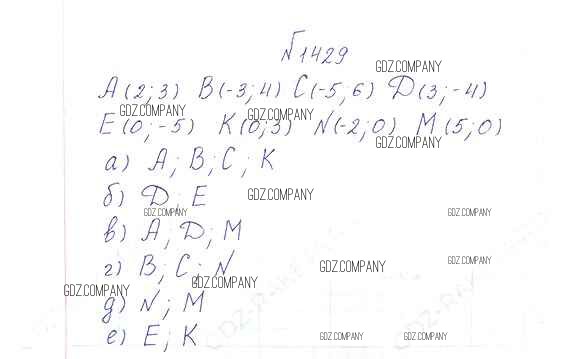 №1429
GDZ.COMPANY
A(2;3) B(-3;4) C(-5,6) D(3;-4)
GDZ.COMPANY
GDZ.COMPANY
E(0;-5) K(0;3) N(-2;0) M(5;0)
GDZ.COMPANY
а) A; B; C; K
б) D; E
GDZ.COMPANY
GDZ.COMPANY
GDZ.COMPANY
в) A; D; M
г) B; C; N
GDZ.COMPANY
GDZ.COMPANY
GDZ.COMPANY
GDZ.COMPANY
д) N; M
е) E; K
GDZ.COMPANY
GDZ.COMPANY